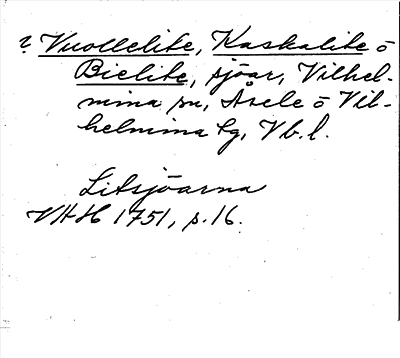 ? Vuollelite, Kaskalite o
Bielite, sjöar, Vilhel-
mina sn, Åsele o Vil-
helmina tg, Vb. l.
Litsjöarna
VHH 1751, s. 16.